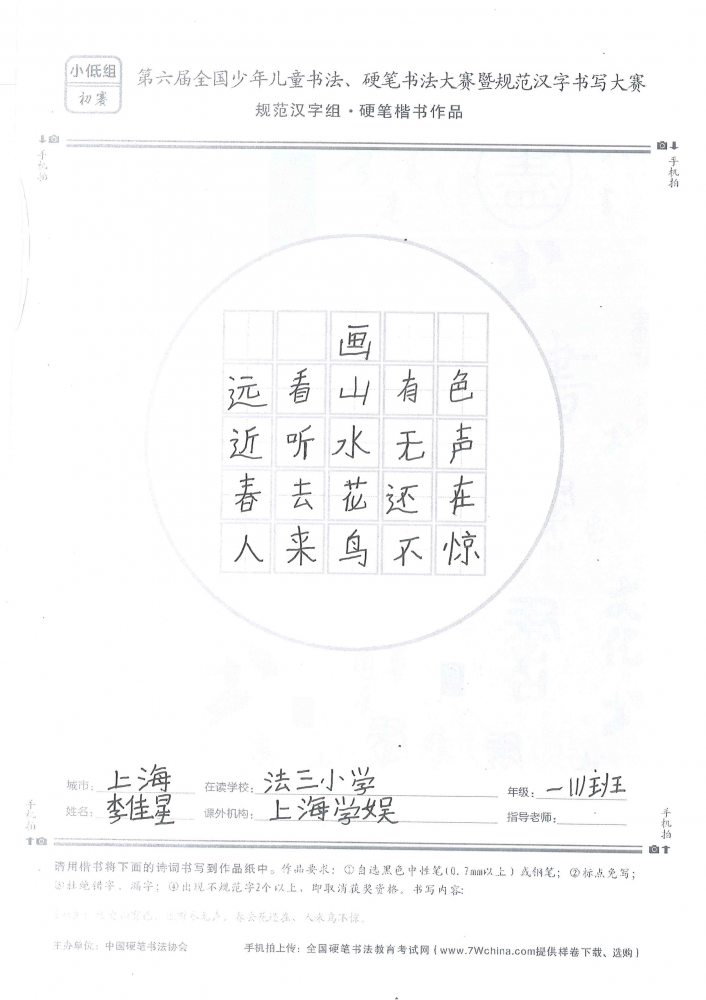 小低组
初赛
第六届全国少年儿童书法、硬笔书法大赛暨规范汉字书写大赛
规范汉字组·硬笔楷书作品
手机拍
手机拍
画
远看山有色
近听水无声
春去花还在
人来鸟不惊
城市：上海 在读学校：法三小学 年级：一(1)班
姓名：李佳星 课外机构：上海学娱 指导老师：
手机拍
手机拍
请用楷书将下面的诗词书写到作品纸中。作品要求：①自选黑色中性笔(0.7mm以上)或钢笔；②标点免写；
③杜绝错字、漏字；④出现不规范字2个以上，即取消获奖资格。书写内容：
春去花还在，人来鸟不惊。
主办单位：中国硬笔书法协会 手机拍上传：全国硬笔书法教育考试网（www.7Wchina.com提供样卷下载、选购）